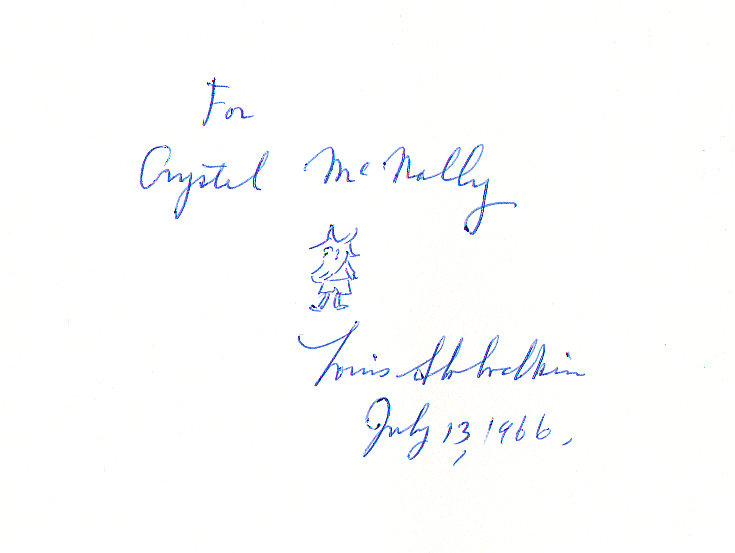 For
Crystal McNally
Louis Slobodkin
July 13, 1966.